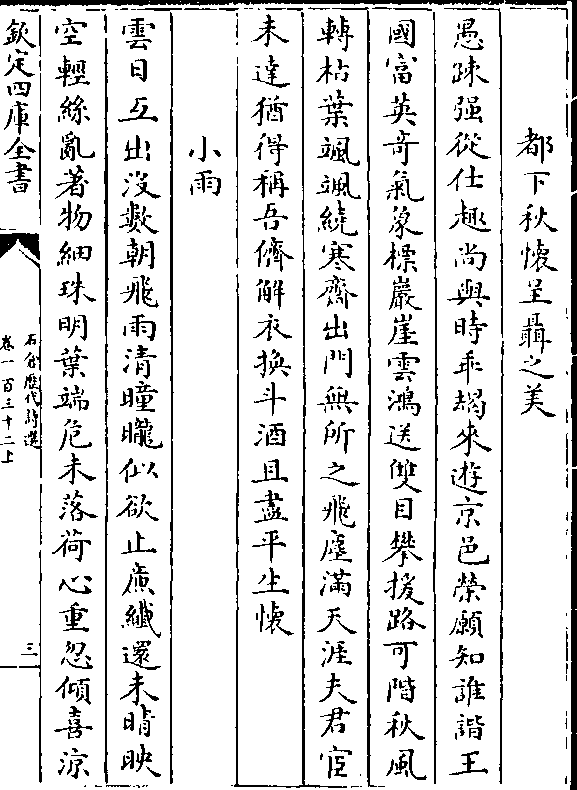 都下秋懷呈聶之美
愚踈强從仕趣尚與時乖朅來遊京邑榮願知誰諧王
國富英奇氣象標巖崖雲鴻送雙目攀援路可階秋風
轉枯葉颯颯繞寒齋出門無所之飛塵滿天涯夫君宦
未達猶得稱吾儕解衣換斗酒且盡平生懷
小雨
雲日互出没數朝飛雨清曈曨似欲止㢘纖還未晴映
空輕絲亂著物細珠明葉端危未落荷心重忽傾喜涼
欽定四庫全書
石倉歴代詩選
卷一百三十二上
三